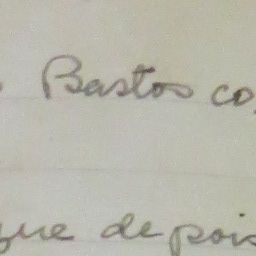 Bastos co
que depois